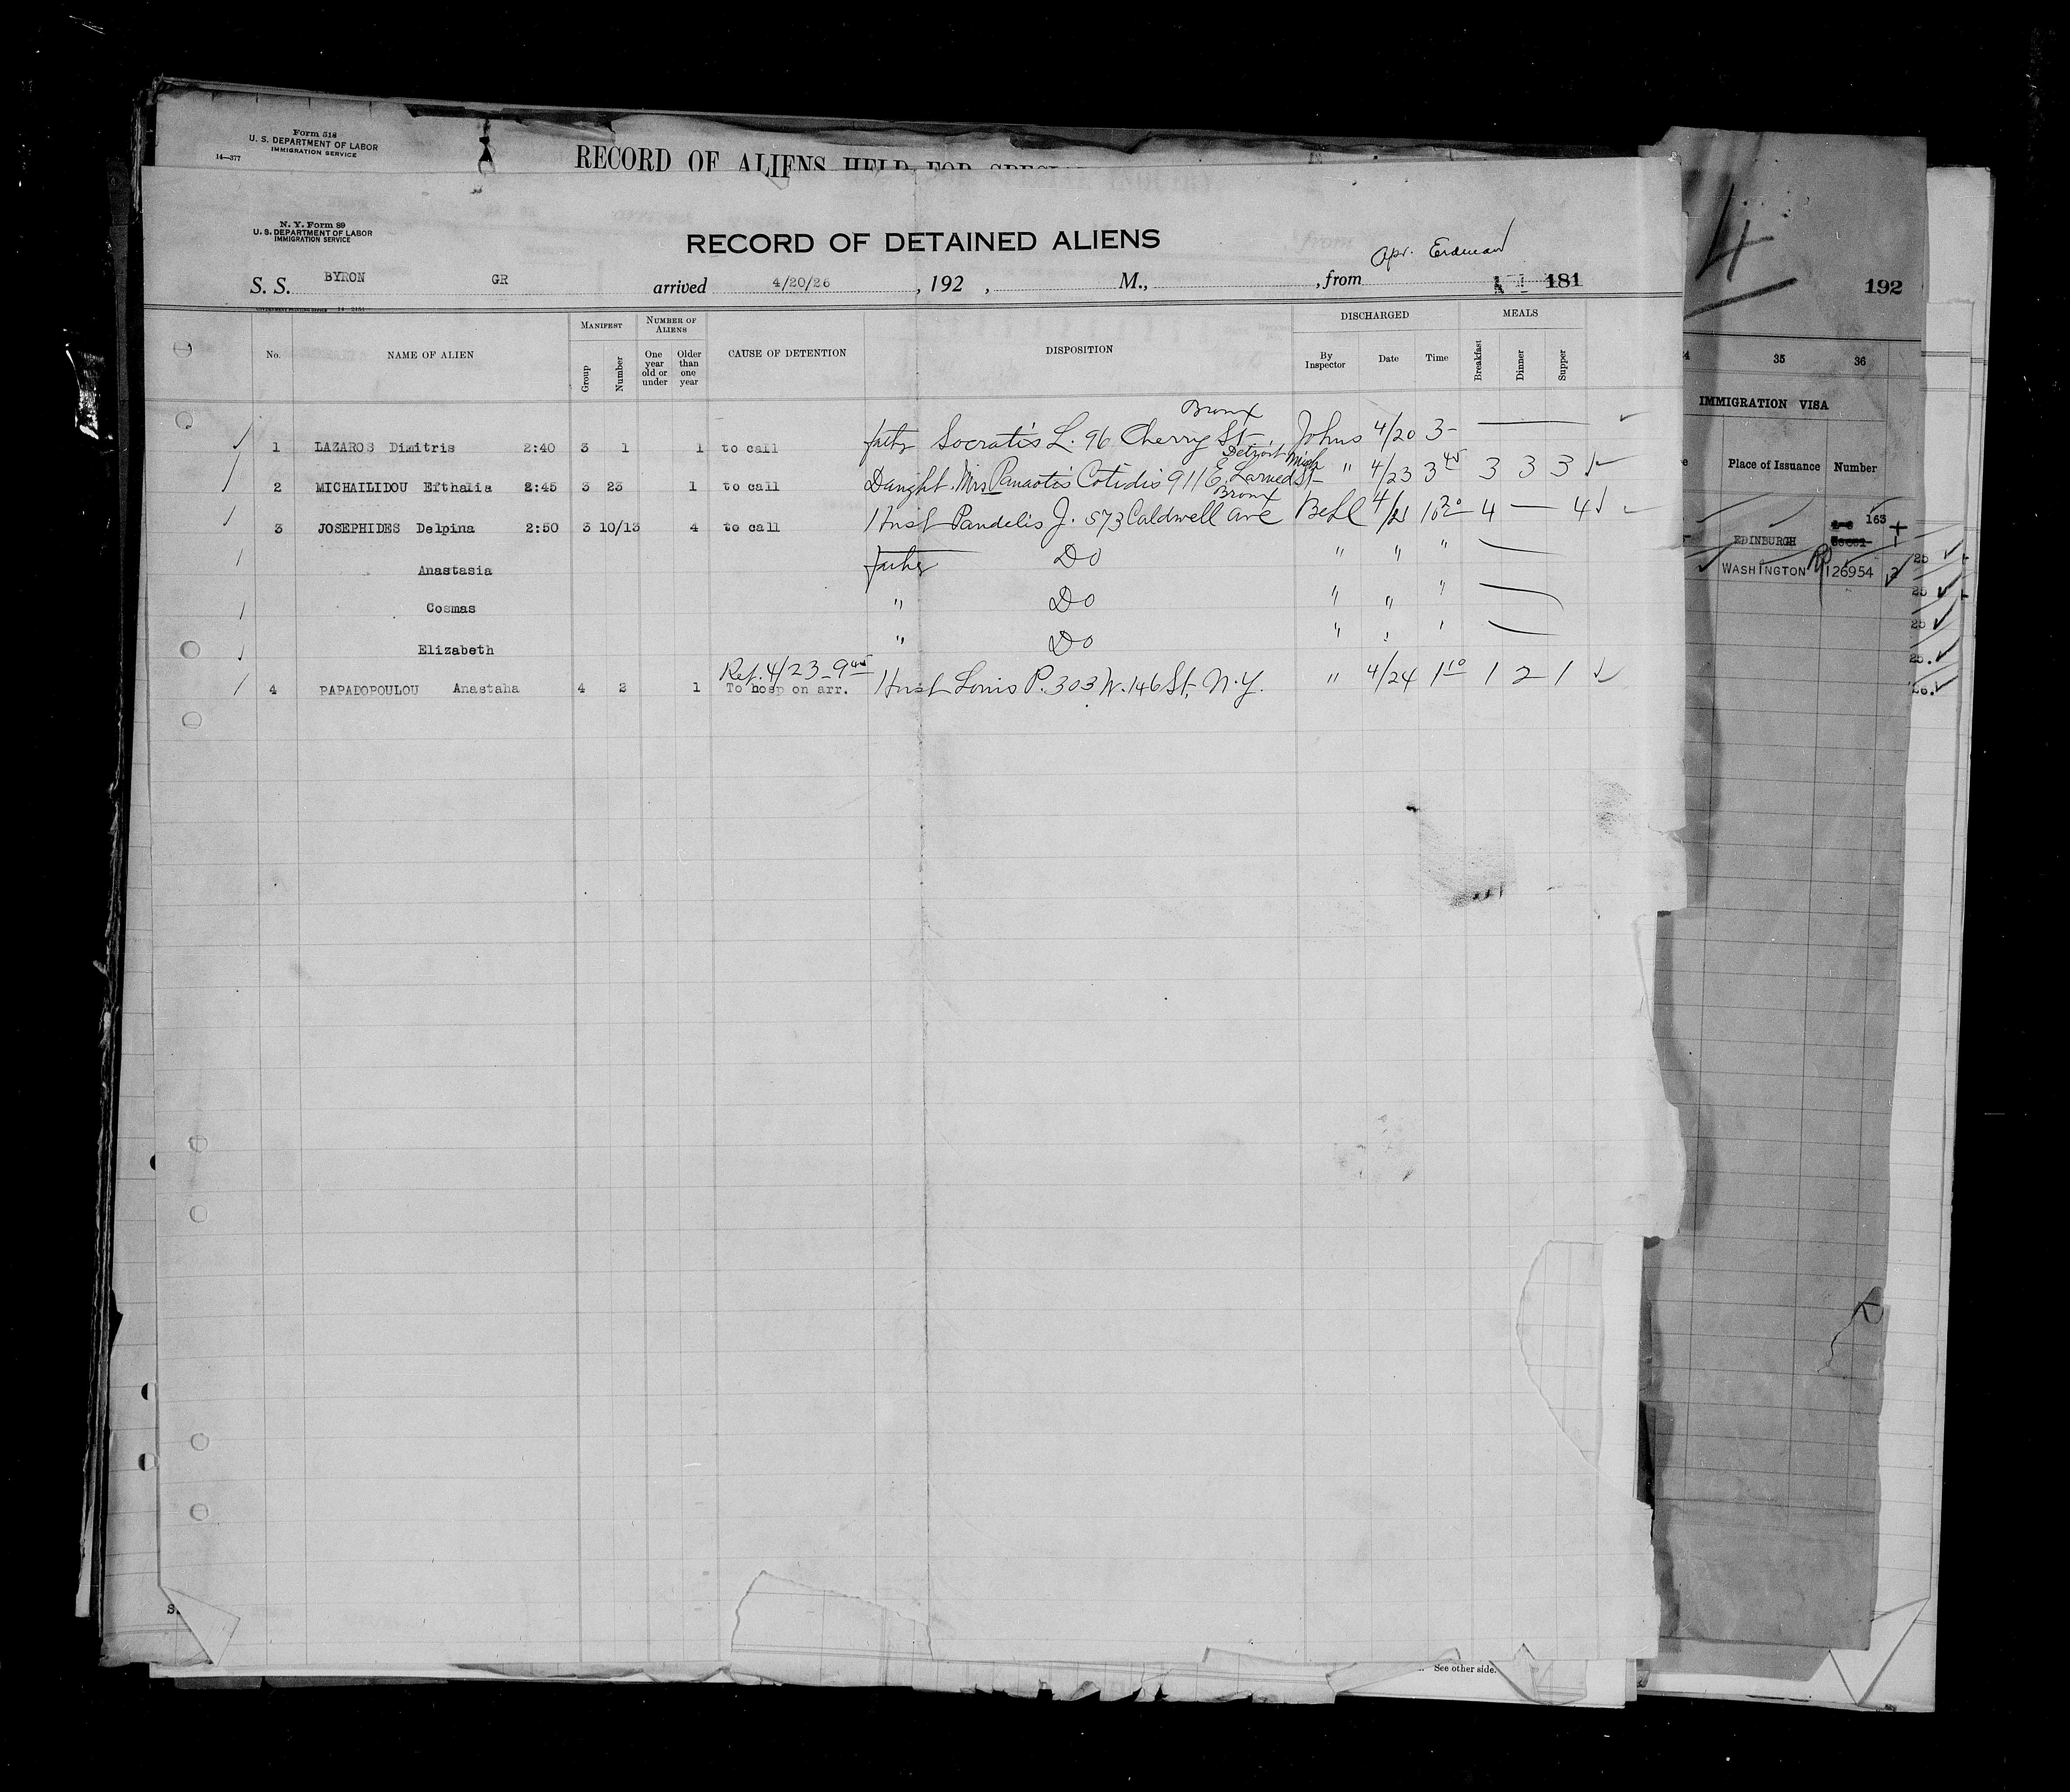 Form 518
U. S. DEPARTMENT OF LABOR
IMMIGRATION SERVICE
14—377
RECORD OF ALIENS HELD FOR SPECI
N. Y. Form 89
U. S. DEPARTMENT OF LABOR
IMMIGRATION SERVICE
RECORD OF DETAINED ALIENS
S. S. BYRON GR arrived 4/20/26 , 192 , M., , from 181
GOVERNMENT PRINTING OFFICE
No. NAME OF ALIEN MANIFEST Group Number NUMBER OF ALIENS One year old or under Older than one year CAUSE OF DETENTION DISPOSITION DISCHARGED By Inspector Date Time MEALS Breakfast Dinner Supper
Bronx
1 LAZAROS Dimitris 2:40 3 1 1 to call father Socratis L. 96 Cherry St Johns 4/20 3-
Detroit Mich
2 MICHAILIDOU Efthalia 2:45 3 23 1 to call Daught. Mrs Panaotis Cotidis 911 E. Larned St " 4/23 3 45 3 3 3
Bronx
3 JOSEPHIDES Delpina 2:50 3 10/13 4 to call Husb Pandelis J. 573 Caldwell Ave 4/21 10 20 4 — 4
Anastasia father Do " " "
Cosmas " Do " " "
Elizabeth " Do " " "
Ret. 4/23 - 9 45
4 PAPADOPOULOU Anastaha 4 2 1 To hosp on arr. Husb Louis P. 303 W. 146 St, N.Y. " 4/24 1 10 1 2 1
4
192
35 36
IMMIGRATION VISA
Place of Issuance Number
163
EDINBURGH
WASHINGTON 126954
25
25
25
25.
26.
See other side.